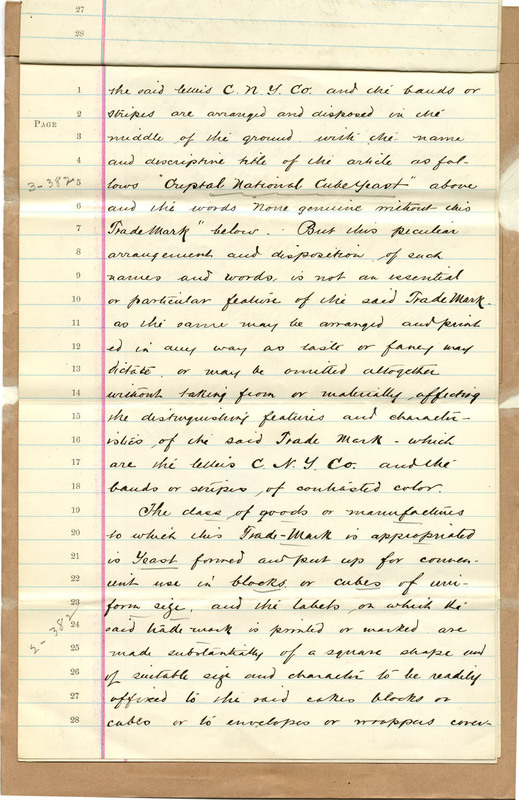 27
28
PAGE
1 the said letters C. N. Y. Co. and the bands or
2 stripes are arranged and disposed in the
3 middle of the ground with the name
4 and descriptive title of the article as fol-
3-382
5 lows "Crystal National Cube Yeast" above
6 and the words "None genuine without this
7 Trade Mark" below. But this peculiar
8 arrangement and disposition of such
9 names and words, is not an essential
10 or particular feature of the said Trade Mark-
11 as the same may be arranged and print
12 ed in any way as taste or fancy may
13 dictate, or may be omitted altogether
14 without taking from or materially affecting
15 the distinguishing features and character-
16 istics of the said Trade Mark - which
17 are the letters C. N. Y. Co. and the
18 bands or stripes of contrasted color.
19 The class of goods or manufactures
20 to which this Trade-Mark is appropriated
21 is Yeast formed and put up for conven-
22 ient use in blocks or cubes of uni-
23 form size, and the labels on which the
2-382
24 said trade mark is printed or marked are
25 made substantially of a square shape and
26 of suitable size and character to be readily
27 affixed to the said cakes blocks or
28 cubes or to envelopes or wrappers cover-